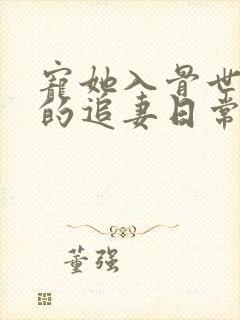 寵她入骨世
的追妻日常
董强